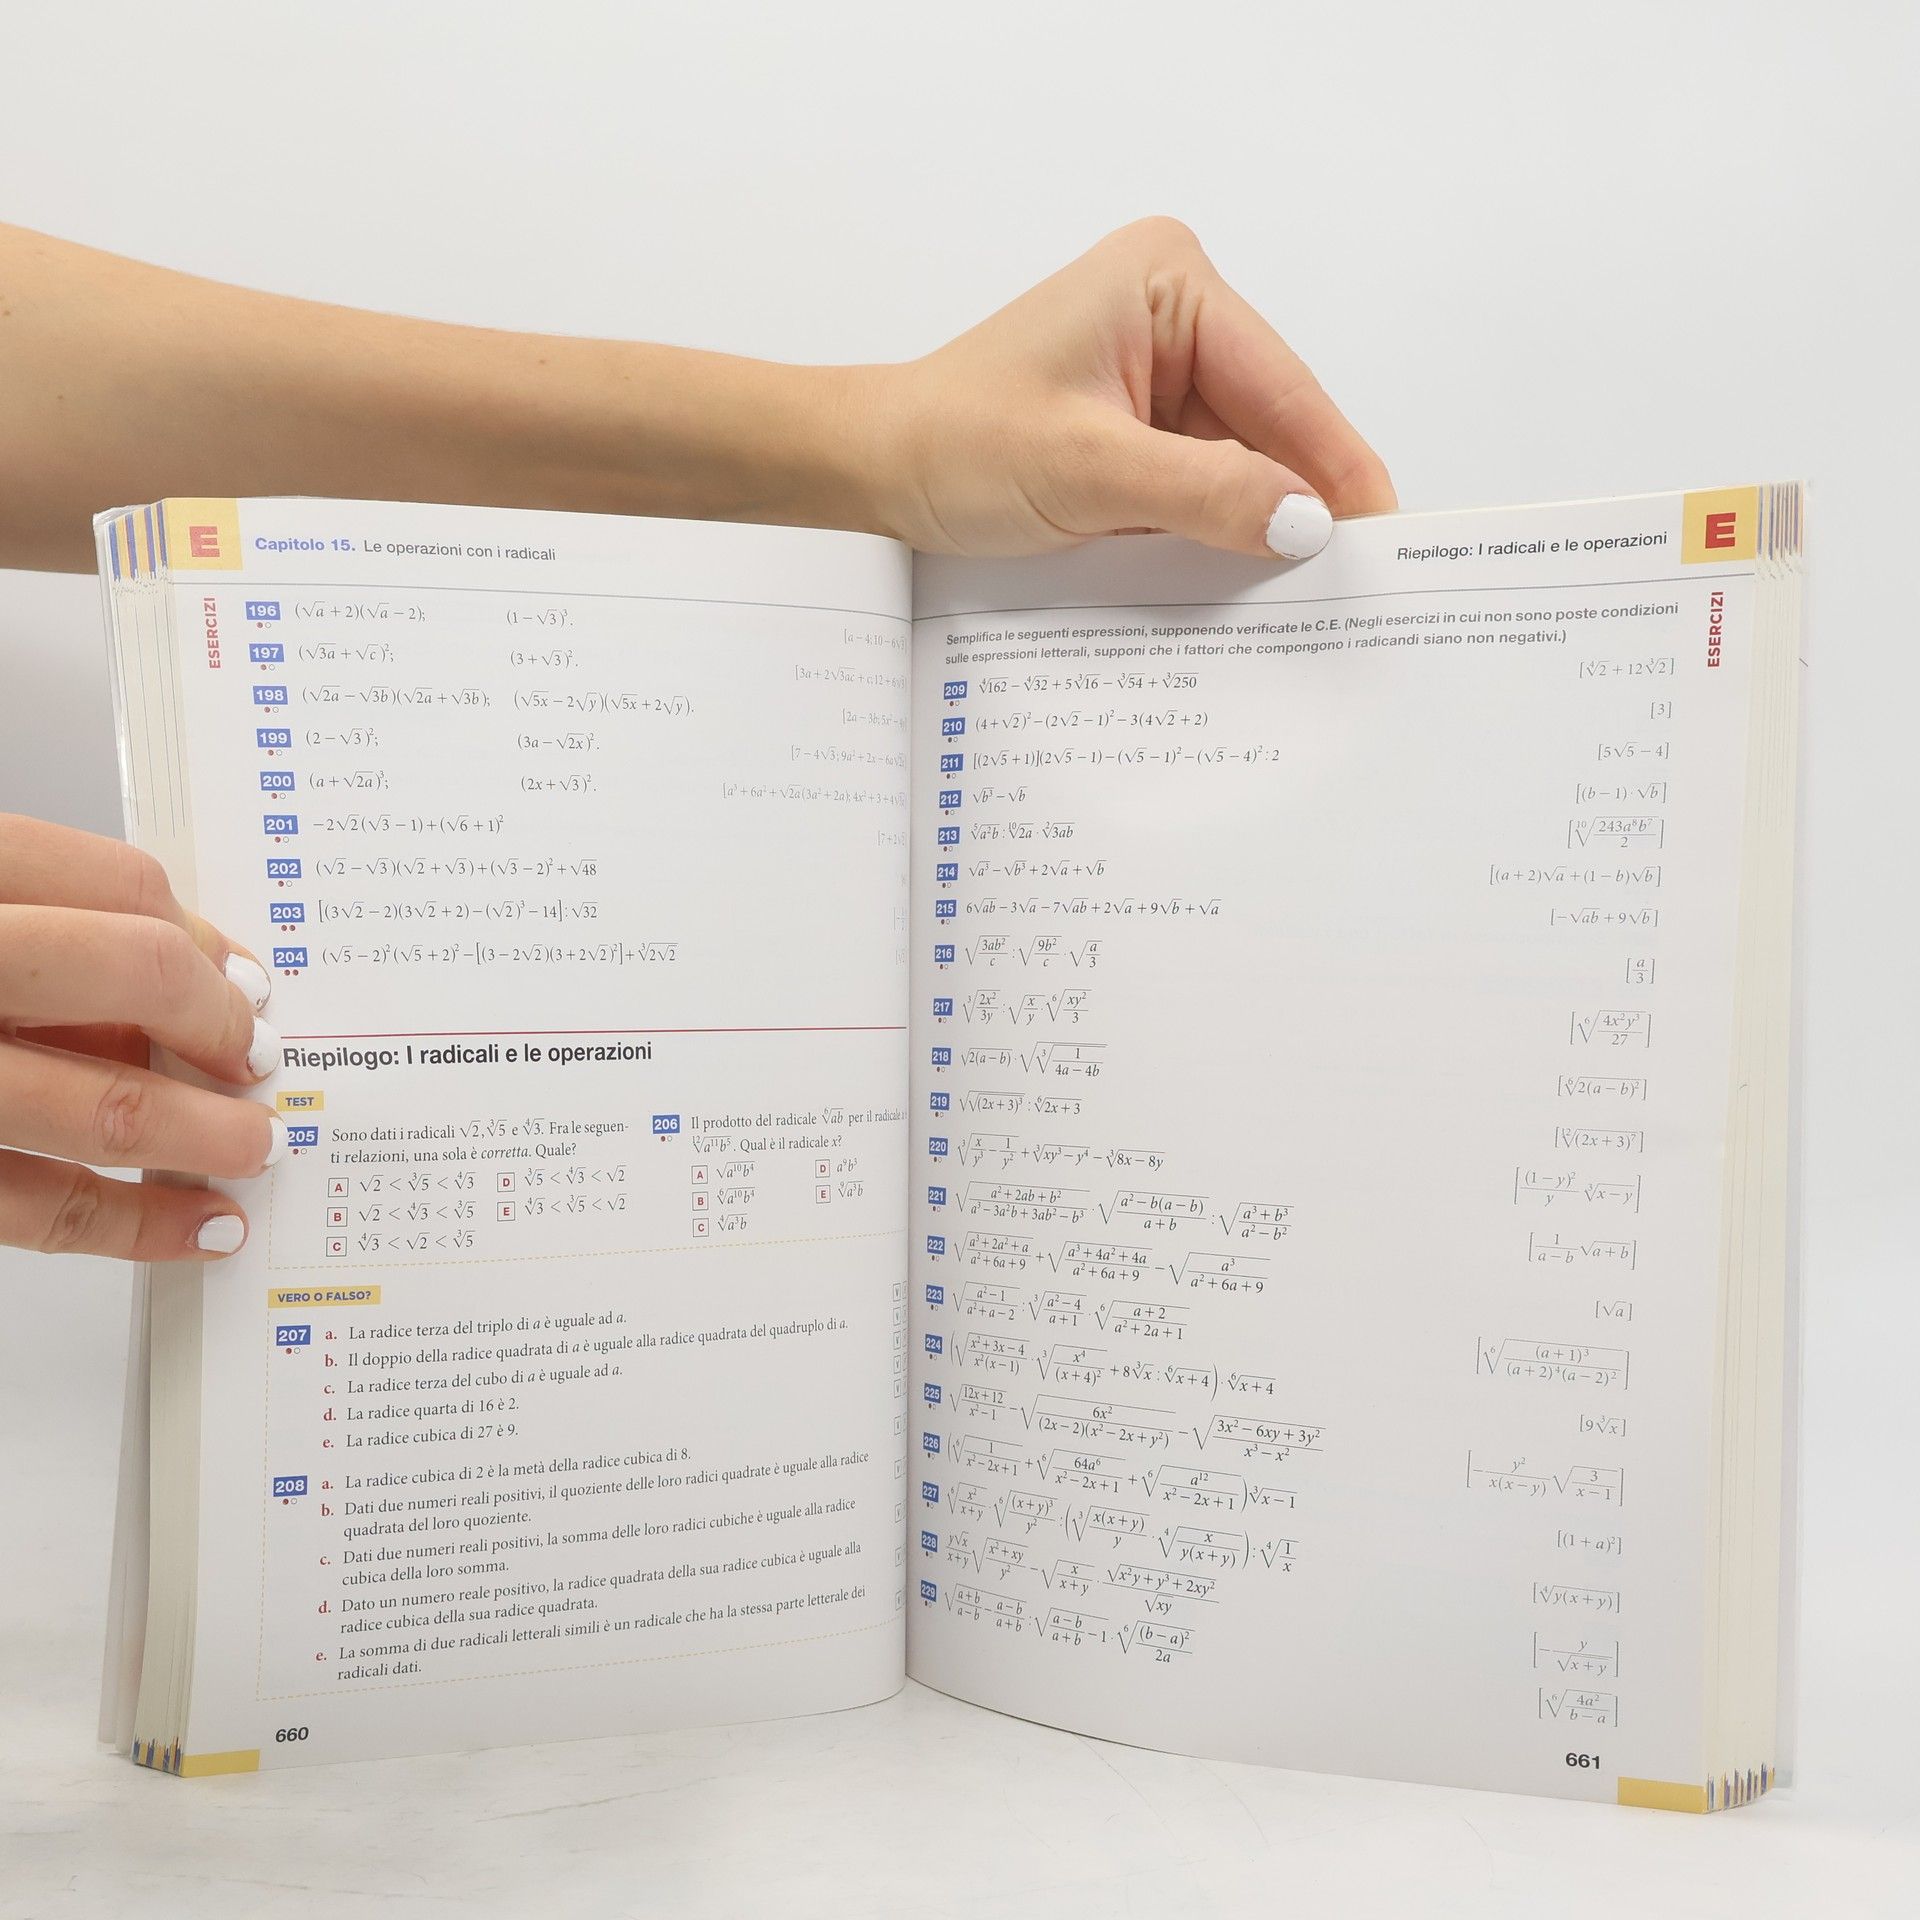 E
Capitolo 15. Le operazioni con i radicali
ESERCIZI
196 (√a + 2)(√a − 2); (1 − √3)³. [a − 4; 10 − 6√3]
197 (√3a + √c)²; (3 + √3)². [3a + 2√3ac + c; 12 + 6√3]
198 (√2a − √3b)(√2a + √3b); (√5x − 2√y)(√5x + 2√y). [2a − 3b; 5x² − 4y]
199 (2 − √3)²; (3a − √2x)². [7 − 4√3; 9a² + 2x − 6a√2x]
200 (a + √2a)³; (2x + √3)². [a³ + 6a² + √2a(3a² + 2a); 4x² + 3 + 4√3x]
201 −2√2(√3 − 1) + (√6 + 1)² [7 + 2√2]
202 (√2 − √3)(√2 + √3) + (√3 − 2)² + √48
203 [(3√2 − 2)(3√2 + 2) − (√2)³ − 14] : √32
204 (√5 − 2)²(√5 + 2)² − [(3 − 2√2)(3 + 2√2)²] + ∛2√2
Riepilogo: I radicali e le operazioni
TEST
205 Sono dati i radicali √2, ∛5 e ∜3. Fra le seguen-
ti relazioni, una sola è corretta. Quale?
A √2 < ∛5 < ∜3 D ∛5 < ∜3 < √2
B √2 < ∜3 < ∛5 E ∜3 < ∛5 < √2
C ∜3 < √2 < ∛5
206 Il prodotto del radicale ⁶√ab per il radicale x è
¹²√a¹¹b⁵. Qual è il radicale x?
A √a¹⁰b⁴ D a⁹b³
B ⁶√a¹⁰b⁴ E ⁹√a³b
C ∜a³b
VERO O FALSO?
207 a. La radice terza del triplo di a è uguale ad a.
b. Il doppio della radice quadrata di a è uguale alla radice quadrata del quadruplo di a.
c. La radice terza del cubo di a è uguale ad a.
d. La radice quarta di 16 è 2.
e. La radice cubica di 27 è 9.
208 a. La radice cubica di 2 è la metà della radice cubica di 8.
b. Dati due numeri reali positivi, il quoziente delle loro radici quadrate è uguale alla radice
quadrata del loro quoziente.
c. Dati due numeri reali positivi, la somma delle loro radici cubiche è uguale alla radice
cubica della loro somma.
d. Dato un numero reale positivo, la radice quadrata della sua radice cubica è uguale alla
radice cubica della sua radice quadrata.
e. La somma di due radicali letterali simili è un radicale che ha la stessa parte letterale dei
radicali dati.
660
Riepilogo: I radicali e le operazioni
E
ESERCIZI
Semplifica le seguenti espressioni, supponendo verificate le C.E. (Negli esercizi in cui non sono poste condizioni
sulle espressioni letterali, supponi che i fattori che compongono i radicandi siano non negativi.)
209 ∜162 − ∜32 + 5∛16 − ∛54 + ∛250 [∜2 + 12∛2]
210 (4 + √2)² − (2√2 − 1)² − 3(4√2 + 2) [3]
211 [(2√5 + 1)](2√5 − 1) − (√5 − 1)² − (√5 − 4)² : 2 [5√5 − 4]
212 √b³ − √b [(b − 1) · √b]
213 ⁵√a²b : ¹⁰√2a · ²√3ab [¹⁰√(243a⁸b⁷/2)]
214 √a³ − √b³ + 2√a + √b [(a + 2)√a + (1 − b)√b]
215 6√ab − 3√a − 7√ab + 2√a + 9√b + √a [−√ab + 9√b]
216 √(3ab²/c) : √(9b²/c) · √(a/3) [a/3]
217 ∛(2x²/3y) : √(x/y) · ⁶√(xy²/3) [⁶√(4x²y³/27)]
218 √2(a − b) · √∛(1/(4a − 4b)) [⁶√2(a − b)²]
219 √√(2x + 3)³ : ⁶√2x + 3 [¹²√(2x + 3)⁷]
220 ∛(x/y³ − 1/y²) + ∛xy³ − y⁴ − ∛8x − 8y [(1 − y)²/y ∛x − y]
221 √((a² + 2ab + b²)/(a³ − 3a²b + 3ab² − b³)) · √((a² − b(a − b))/(a + b)) : √((a³ + b³)/(a² − b²)) [1/(a − b) √a + b]
222 √((a³ + 2a² + a)/(a² + 6a + 9)) + √((a³ + 4a² + 4a)/(a² + 6a + 9)) − √(a³/(a² + 6a + 9)) [√a]
223 √((a² − 1)/(a² + a − 2)) : ∛((a² − 4)/(a + 1)) · ⁶√((a + 2)/(a² + 2a + 1)) [⁶√((a + 1)³/((a + 2)⁴(a − 2)²))]
224 (√((x² + 3x − 4)/(x²(x − 1))) · ∛(x⁴/(x + 4)²) + 8∛x : ⁶√x + 4) · ⁶√x + 4 [9∛x]
225 √((12x + 12)/(x² − 1)) − √(6x²/((2x − 2)(x² − 2x + y²))) − √((3x² − 6xy + 3y²)/(x³ − x²)) [−y²/(x(x − y)) √(3/(x − 1))]
226 (⁶√(1/(x² − 2x + 1)) + ⁶√(64a⁶/(x² − 2x + 1)) + ⁶√(a¹²/(x² − 2x + 1))) ∛x − 1 [(1 + a)²]
227 ⁶√(x²/(x + y)) · ⁶√((x + y)³/y²) : (∛(x(x + y)/y) · ∜(x/(y(x + y)))) : ∜(1/x) [∜y(x + y)]
228 y√x/(x + y) √((x² + xy)/y²) − √(x/(x + y)) · √x²y + y³ + 2xy²/√xy [−y/√x + y]
229 √((a + b)/(a − b) − (a − b)/(a + b)) : √((a − b)/(a + b) − 1) · ⁶√((b − a)²/2a) [⁶√(4a²/(b − a))]
661